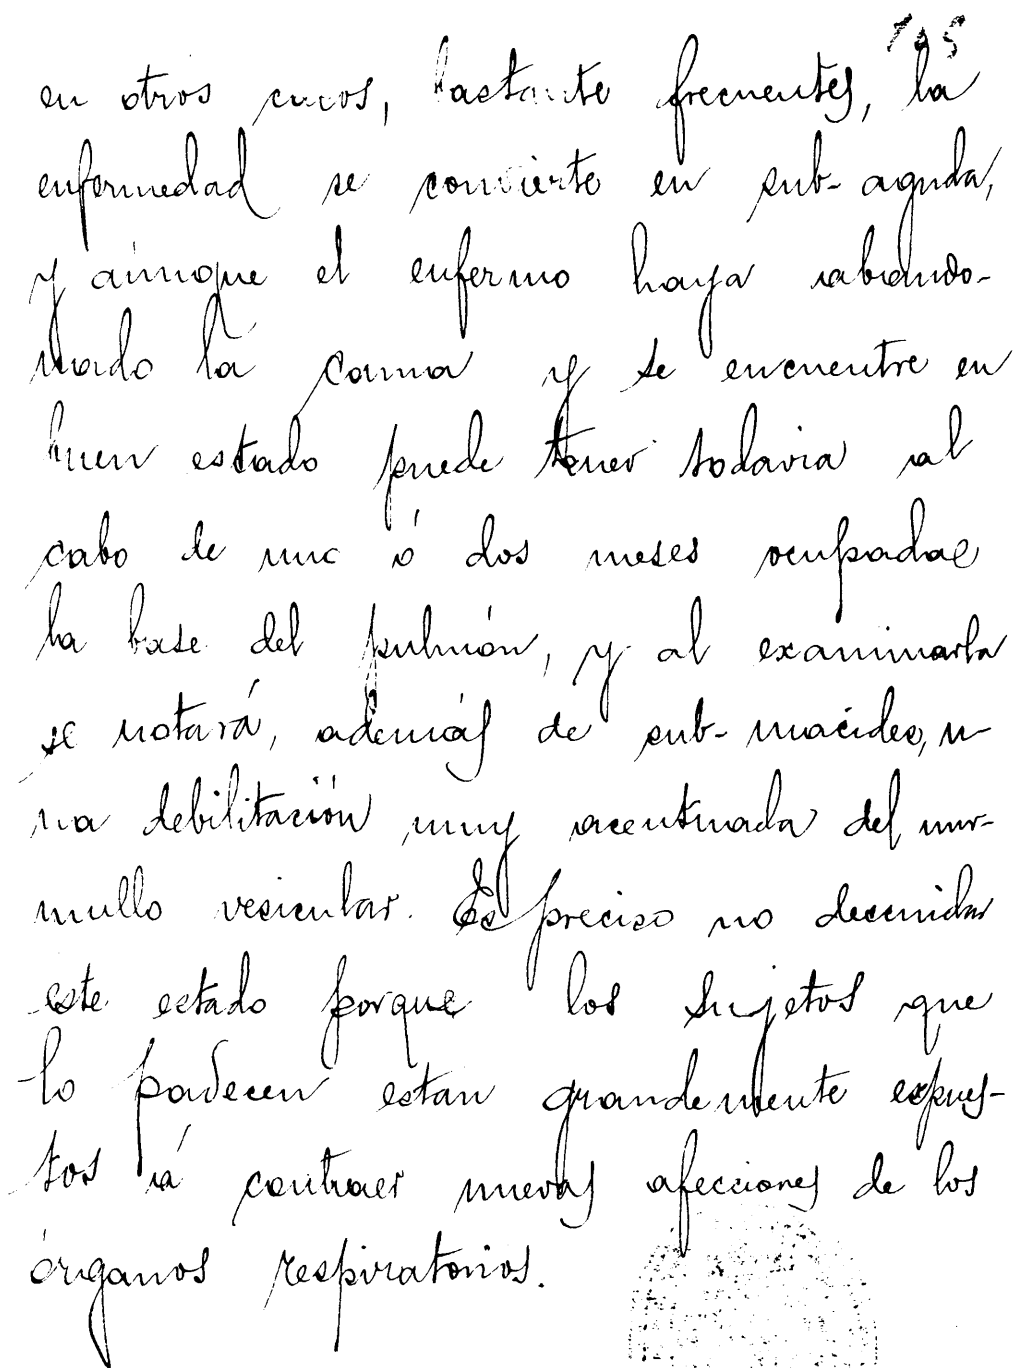 105
en otros casos, bastante frecuentes, la
enfermedad se convierte en sub-aguda,
y aunque el enfermo haya abando-
nado la cama y se encuentre en
buen estado puede tener todavia al
cabo de uno ó dos meses ocupadas
la base del pulmón, y al examinarla
se notará, además de sub-macidez, u-
na debilitación muy acentuada del mur-
mullo vesicular. Es preciso no descuidar
este estado porque los sujetos que
lo padecen estan grandemente expues-
tos á contraer nuevas afecciones de los
órganos respiratorios.